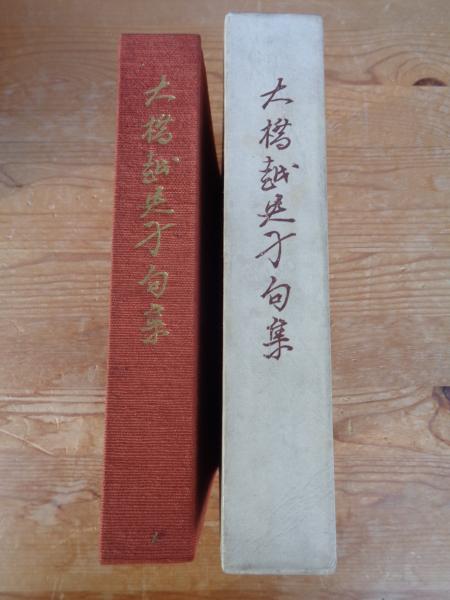 大橋越央子句集
大橋越央子句集